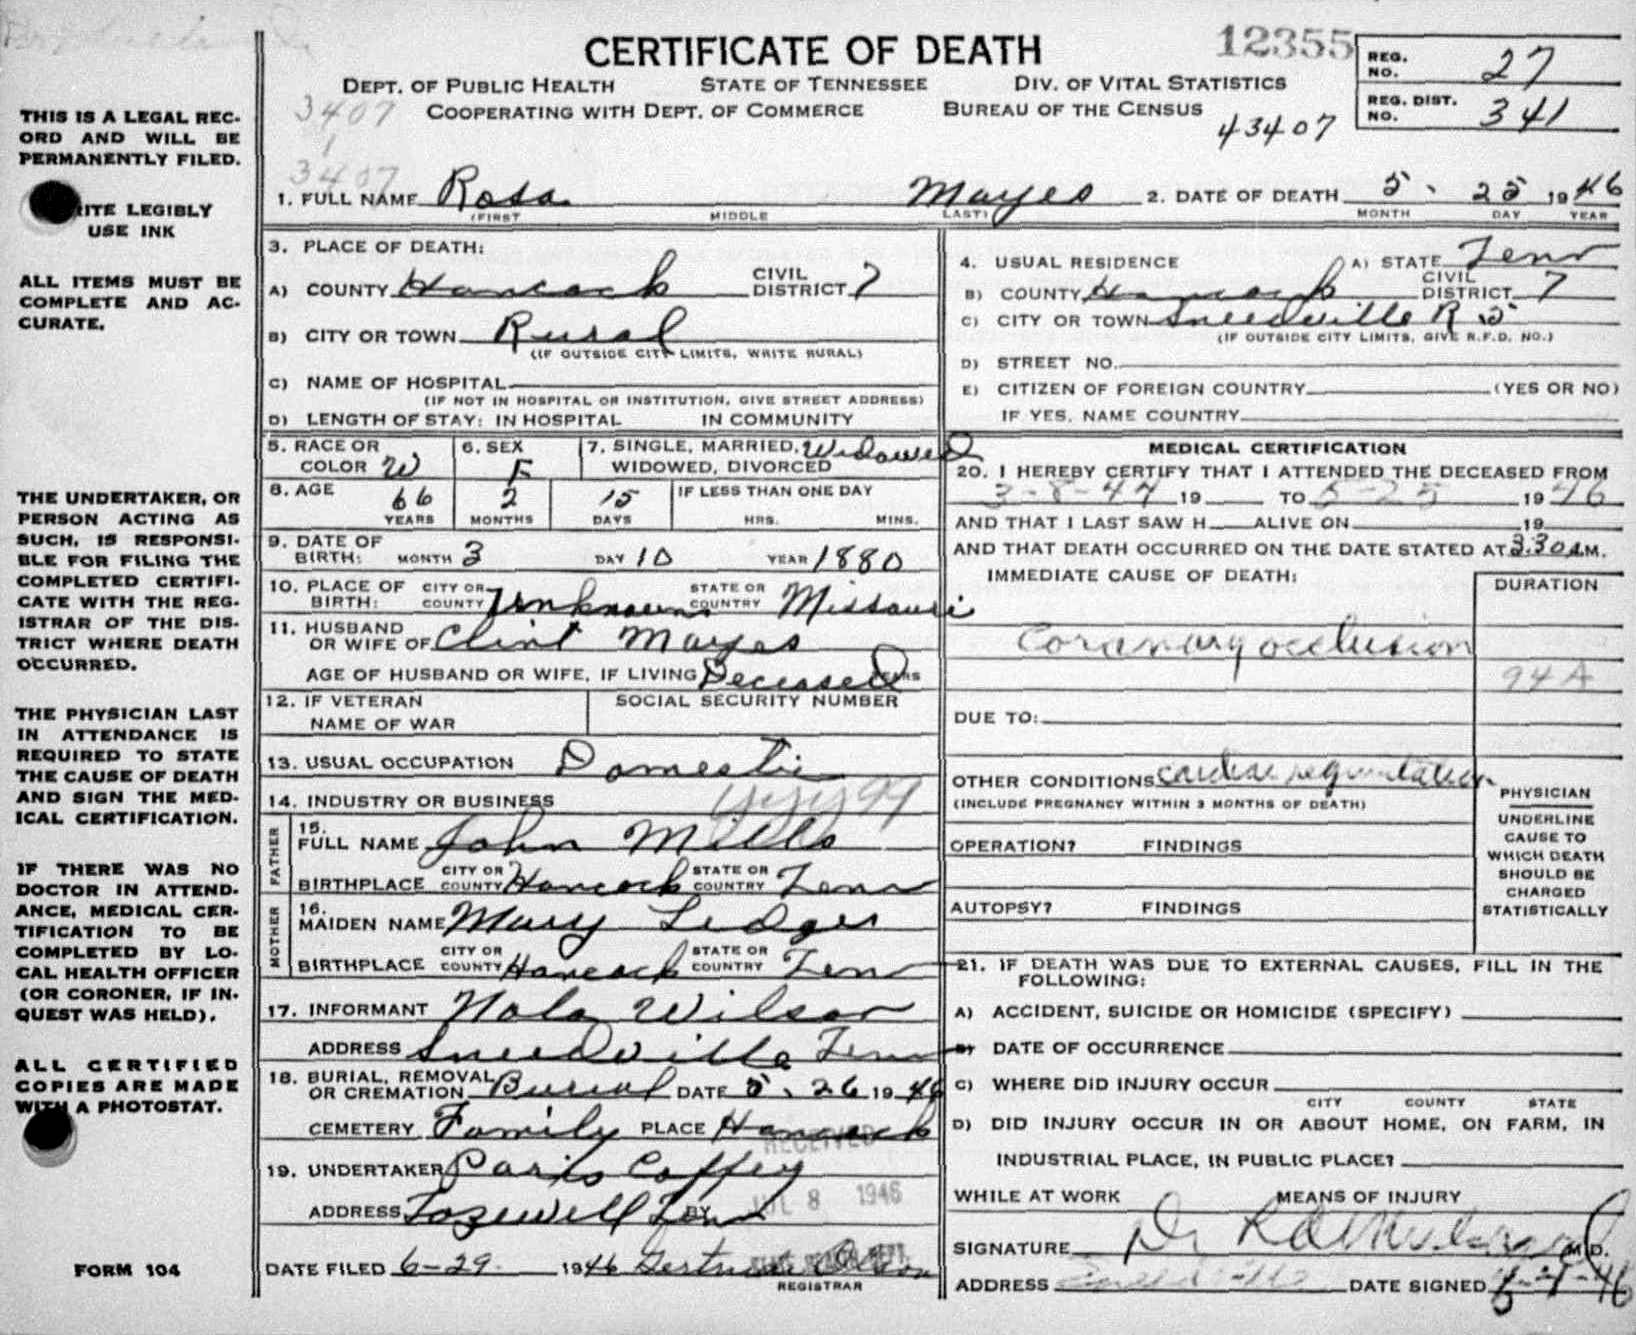 CERTIFICATE OF DEATH
12355
DEPT. OF PUBLIC HEALTH STATE OF TENNESSEE DIV. OF VITAL STATISTICS
COOPERATING WITH DEPT. OF COMMERCE BUREAU OF THE CENSUS
REG. NO. 27
REG. DIST. NO. 341
43407
3407
1
3407
THIS IS A LEGAL REC-
ORD AND WILL BE
PERMANENTLY FILED.
ITE LEGIBLY
USE INK
ALL ITEMS MUST BE
COMPLETE AND AC-
CURATE.
THE UNDERTAKER, OR
PERSON ACTING AS
SUCH, IS RESPONSI-
BLE FOR FILING THE
COMPLETED CERTIFI-
CATE WITH THE REG-
ISTRAR OF THE DIS-
TRICT WHERE DEATH
OCCURRED.
THE PHYSICIAN LAST
IN ATTENDANCE IS
REQUIRED TO STATE
THE CAUSE OF DEATH
AND SIGN THE MED-
ICAL CERTIFICATION.
IF THERE WAS NO
DOCTOR IN ATTEND-
ANCE, MEDICAL CER-
TIFICATION TO BE
COMPLETED BY LO-
CAL HEALTH OFFICER
(OR CORONER, IF IN-
QUEST WAS HELD).
ALL CERTIFIED
COPIES ARE MADE
WITH A PHOTOSTAT.
FORM 104
1. FULL NAME Rosa Mayes 2. DATE OF DEATH 5. 25 1946
(FIRST MIDDLE LAST) MONTH DAY YEAR
3. PLACE OF DEATH:
A) COUNTY Hancock CIVIL DISTRICT 7
B) CITY OR TOWN Rural
(IF OUTSIDE CITY LIMITS, WRITE RURAL)
C) NAME OF HOSPITAL
(IF NOT IN HOSPITAL OR INSTITUTION, GIVE STREET ADDRESS)
D) LENGTH OF STAY: IN HOSPITAL IN COMMUNITY
4. USUAL RESIDENCE A) STATE Tenn
B) COUNTY Hancock CIVIL DISTRICT 7
C) CITY OR TOWN Sneedville R 5
(IF OUTSIDE CITY LIMITS, GIVE R.F.D. NO.)
D) STREET NO.
E) CITIZEN OF FOREIGN COUNTRY (YES OR NO)
IF YES, NAME COUNTRY
5. RACE OR COLOR W 6. SEX F 7. SINGLE, MARRIED, WIDOWED, DIVORCED Widowed
8. AGE 66 YEARS 2 MONTHS 15 DAYS IF LESS THAN ONE DAY HRS. MINS.
9. DATE OF BIRTH: MONTH 3 DAY 10 YEAR 1880
10. PLACE OF BIRTH: CITY OR COUNTY Unknown STATE OR COUNTRY Missouri
11. HUSBAND OR WIFE OF Clint Mayes
AGE OF HUSBAND OR WIFE, IF LIVING Deceased YEARS
12. IF VETERAN NAME OF WAR SOCIAL SECURITY NUMBER
13. USUAL OCCUPATION Domestic
14. INDUSTRY OR BUSINESS
FATHER
15. FULL NAME John Mills
BIRTHPLACE CITY OR COUNTY Hancock STATE OR COUNTRY Tenn
MOTHER
16. MAIDEN NAME Mary Ledger
BIRTHPLACE CITY OR COUNTY Hancock STATE OR COUNTRY Tenn
17. INFORMANT Nola Wilson
ADDRESS Sneedville Tenn
18. BURIAL, REMOVAL OR CREMATION Burial DATE 5. 26 1946
CEMETERY Family PLACE Hancock
RECEIVED
19. UNDERTAKER Paris Coffey
ADDRESS Tazewell Tenn
JUL 8 1946
BY
DATE FILED 6-29 1946 Gertrude
REGISTRAR
MEDICAL CERTIFICATION
20. I HEREBY CERTIFY THAT I ATTENDED THE DECEASED FROM
3-8-44 19 TO 5-25 1946
AND THAT I LAST SAW H ALIVE ON 19
AND THAT DEATH OCCURRED ON THE DATE STATED AT 3:30 A.M.
IMMEDIATE CAUSE OF DEATH: DURATION
Coronary occlusion
94A
DUE TO:
OTHER CONDITIONS cardiac regurgitation
(INCLUDE PREGNANCY WITHIN 3 MONTHS OF DEATH)
OPERATION? FINDINGS
AUTOPSY? FINDINGS
PHYSICIAN
UNDERLINE
CAUSE TO
WHICH DEATH
SHOULD BE
CHARGED
STATISTICALLY
21. IF DEATH WAS DUE TO EXTERNAL CAUSES, FILL IN THE
FOLLOWING:
A) ACCIDENT, SUICIDE OR HOMICIDE (SPECIFY)
B) DATE OF OCCURRENCE
C) WHERE DID INJURY OCCUR
CITY COUNTY STATE
D) DID INJURY OCCUR IN OR ABOUT HOME, ON FARM, IN
INDUSTRIAL PLACE, IN PUBLIC PLACE?
WHILE AT WORK MEANS OF INJURY
SIGNATURE Dr M.D.
ADDRESS Sneedville DATE SIGNED